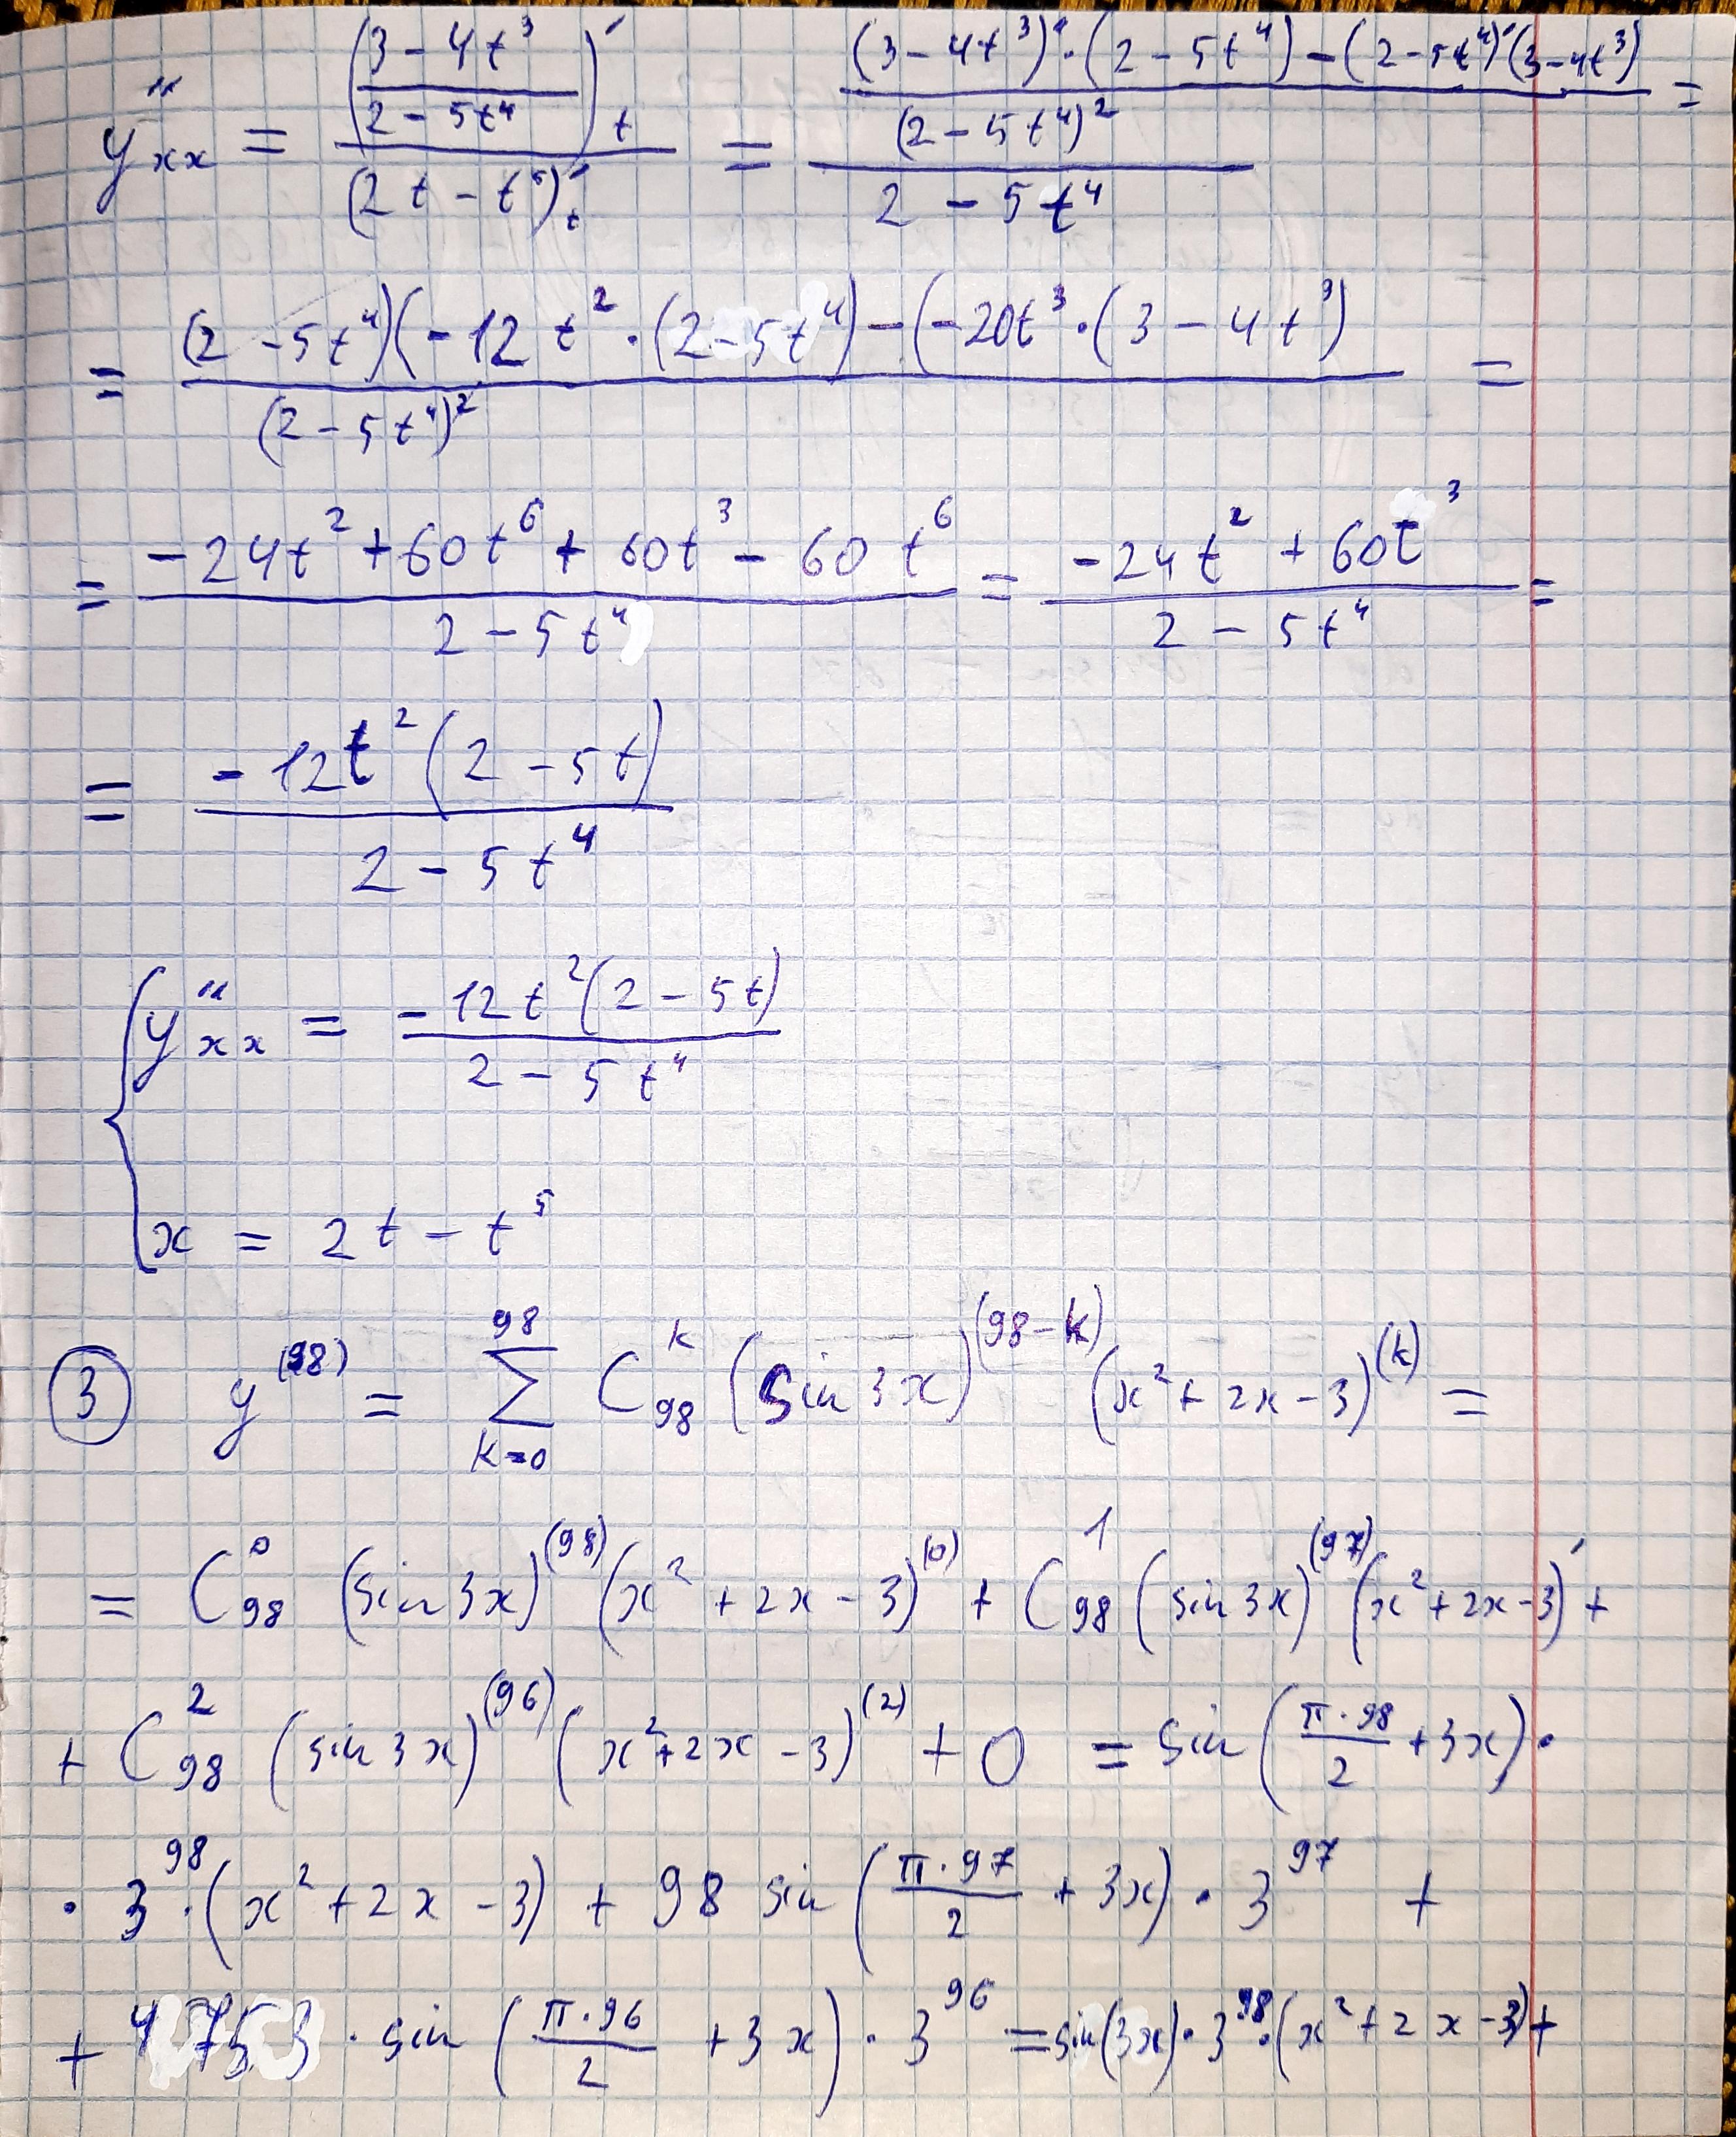 y''xx = ((3 - 4t³)/(2 - 5t⁴))'t / (2t - t⁵)'t = ((3 - 4t³)' · (2 - 5t⁴) - (2 - 5t⁴)'(3 - 4t³))/(2 - 5t⁴)² / (2 - 5t⁴) =
= (2 - 5t⁴)(-12t² · (2 - 5t⁴) - (-20t³ · (3 - 4t³) / (2 - 5t⁴)² =
= (-24t² + 60t⁶ + 60t³ - 60t⁶) / (2 - 5t⁴) = (-24t² + 60t³) / (2 - 5t⁴) =
= -12t²(2 - 5t) / (2 - 5t⁴)
{ y''xx = -12t²(2 - 5t) / (2 - 5t⁴)
x = 2t - t⁵
③ y⁽⁹⁸⁾ = ∑_{k=0}^{98} C_98^k (sin 3x)^(98-k) (x² + 2x - 3)^(k) =
= C_98^0 (sin 3x)^(98) (x² + 2x - 3)^(0) + C_98^1 (sin 3x)^(97) (x² + 2x - 3)' +
+ C_98^2 (sin 3x)^(96) (x² + 2x - 3)^(2) + 0 = sin(π·98/2 + 3x) ·
· 3⁹⁸ · (x² + 2x - 3) + 98 sin(π·97/2 + 3x) · 3⁹⁷ +
+ 4753 · sin(π·96/2 + 3x) · 3⁹⁶ = sin(3x) · 3⁹⁸ · (x² + 2x - 3) +